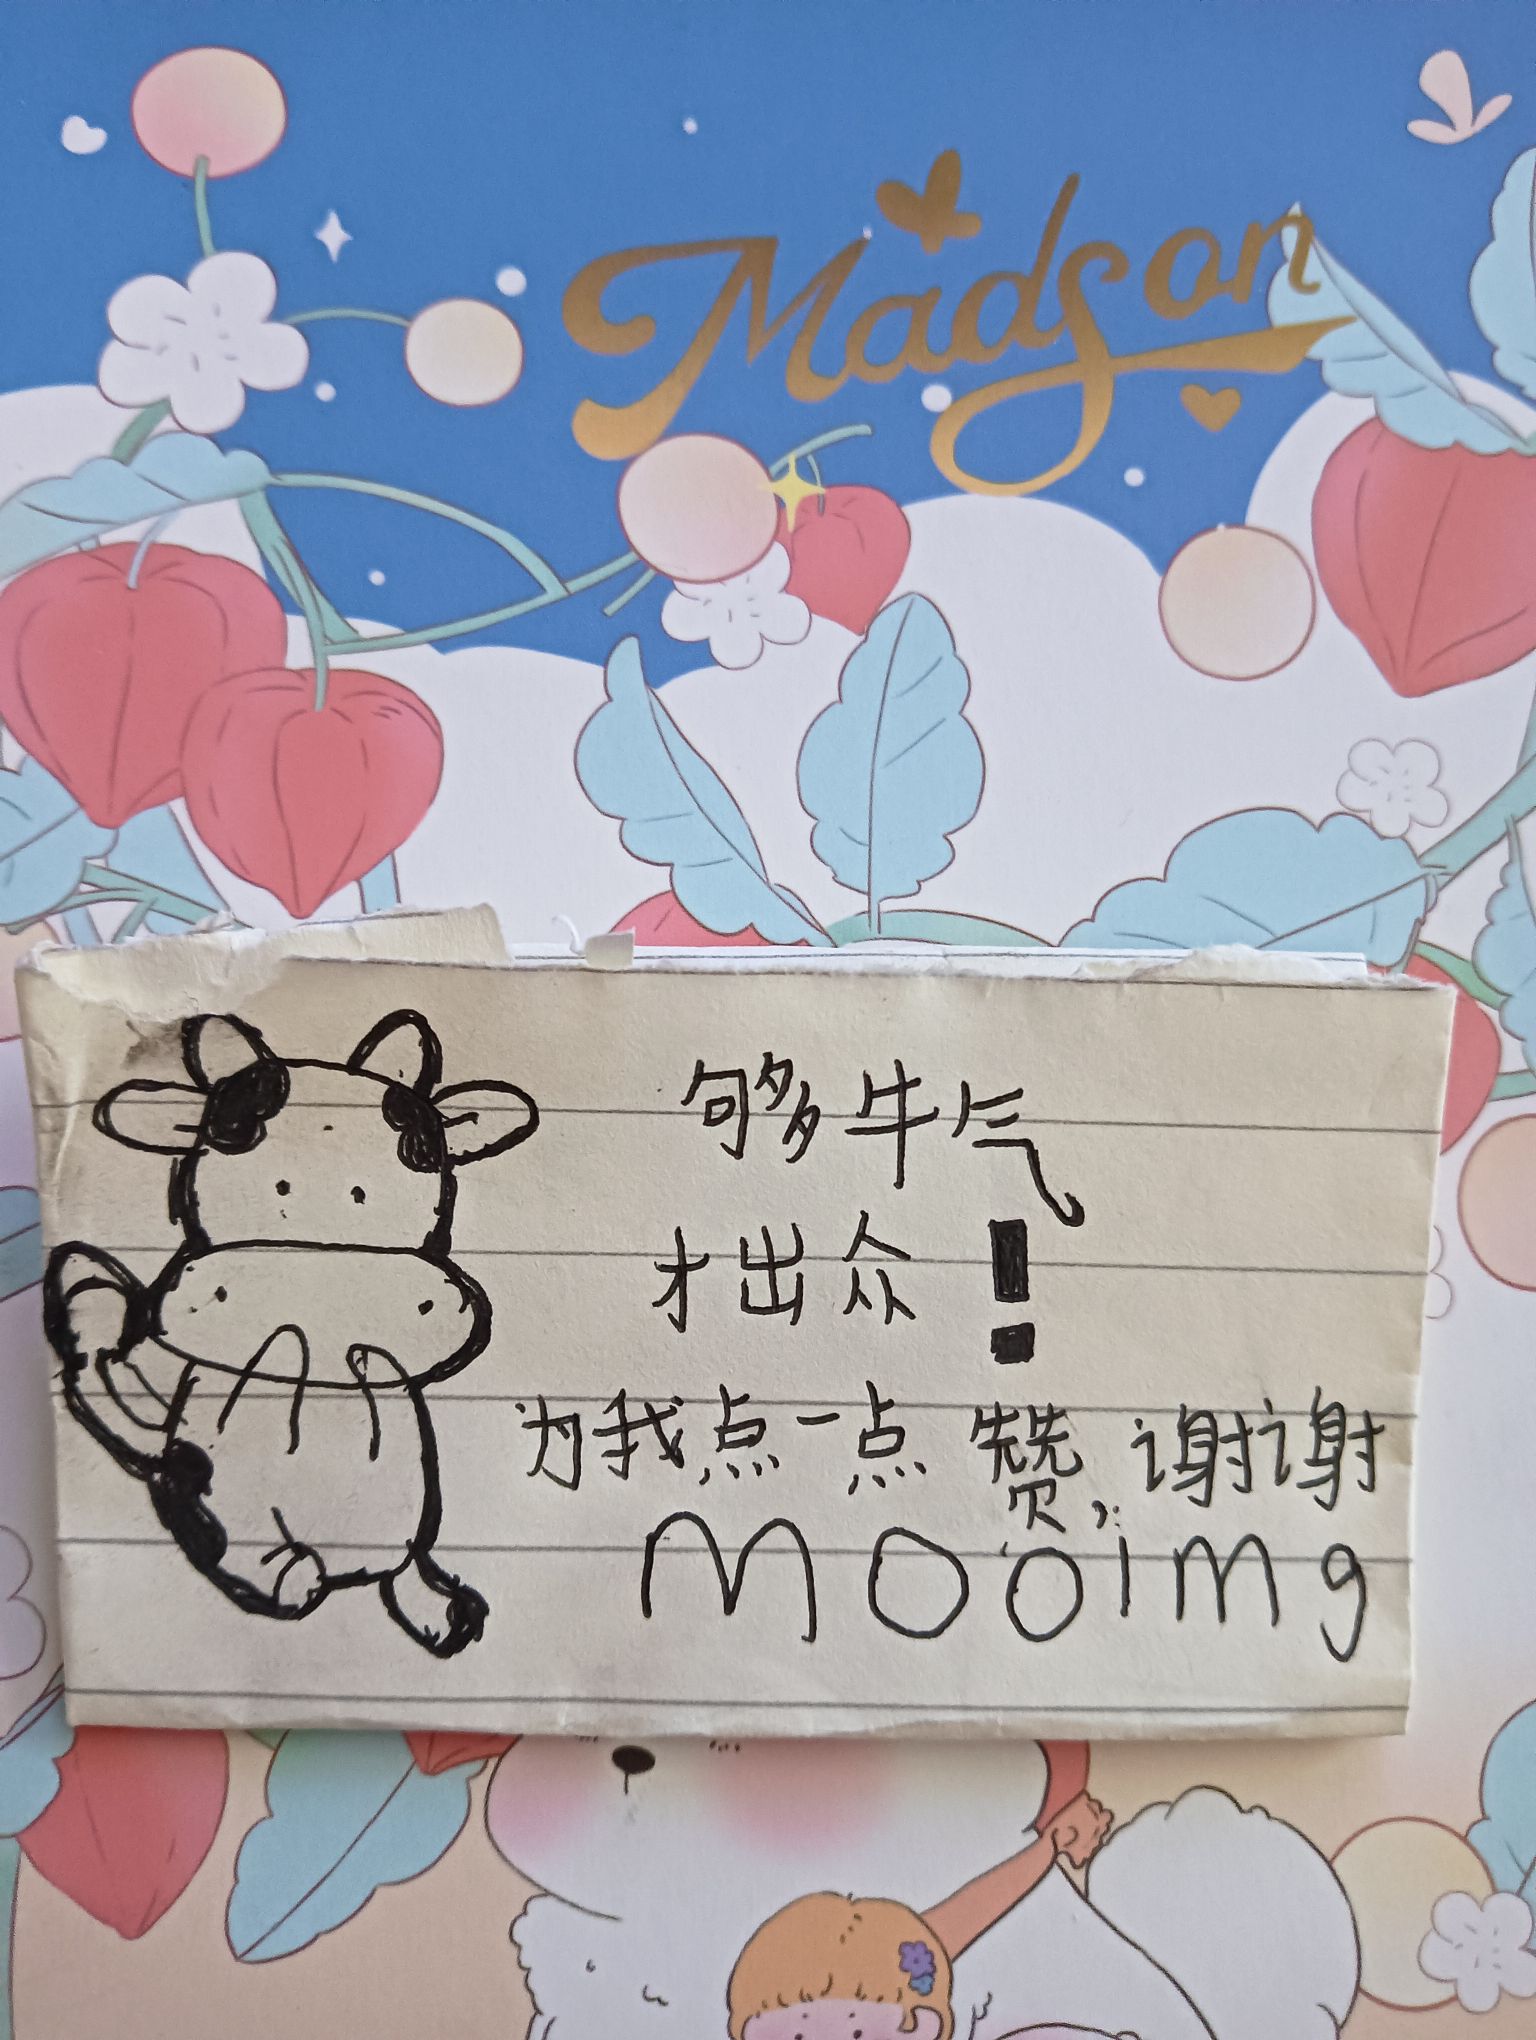 Madson
够牛气
才出众!
为我点一点赞,谢谢
mooimg